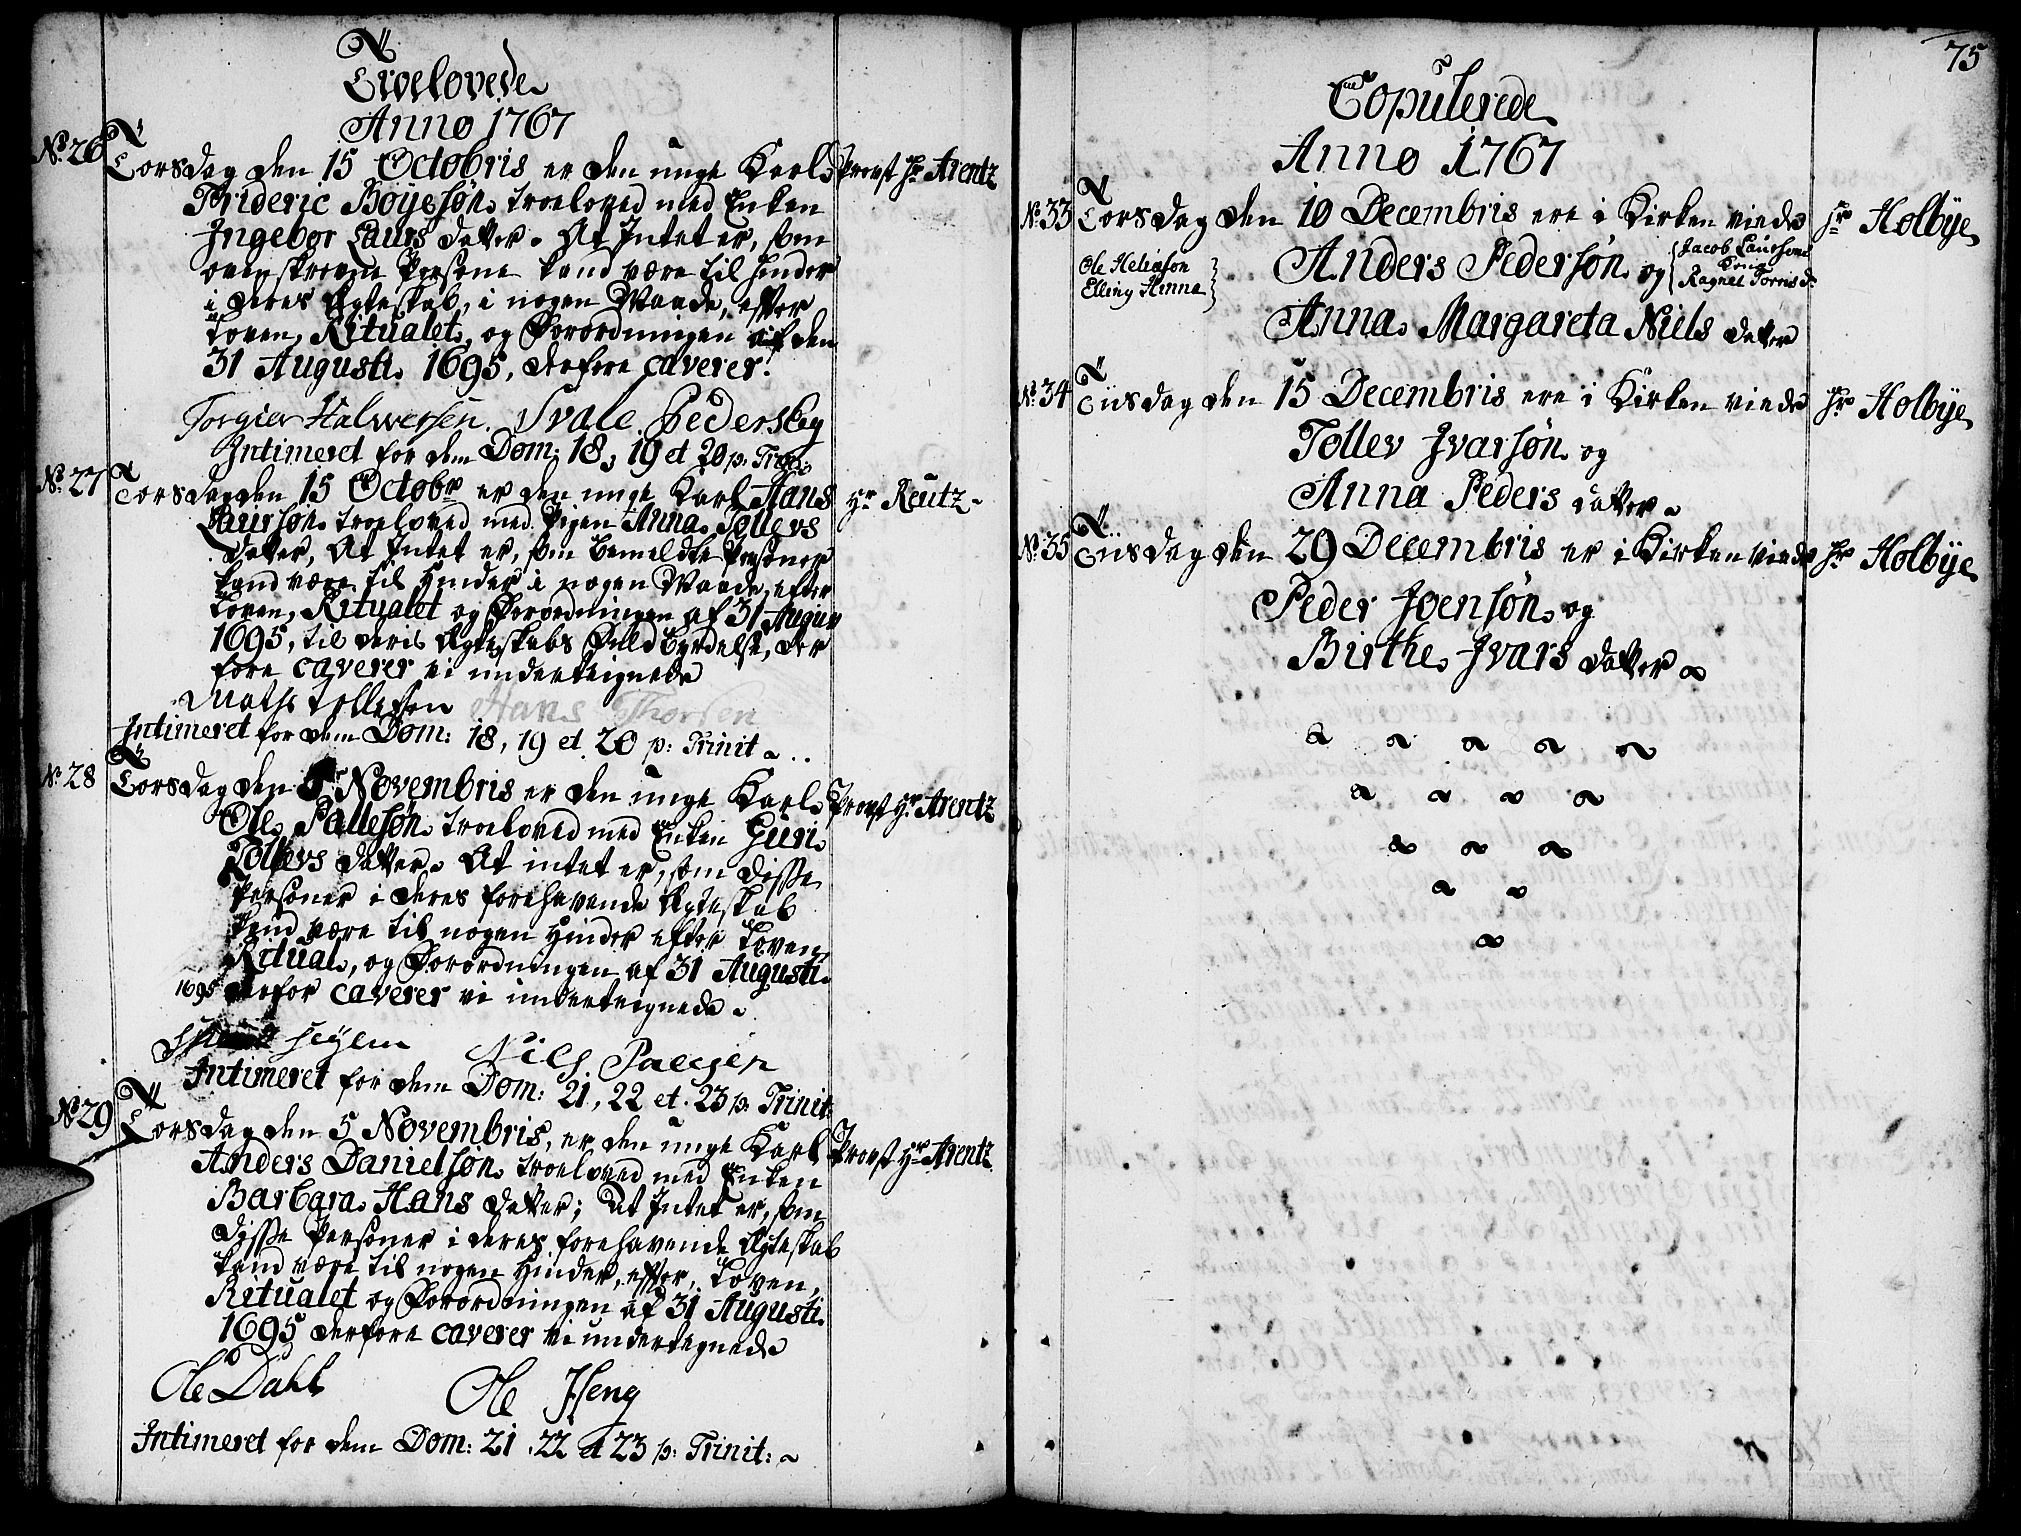 Troelovede
Anno 1767
No. 26 Torsdag den 15 Octobris er den unge Karl Provst Hr Arentz
Frideric Böyesøn troeloved med Enken
Ingebor Laurs datter. At Intet er, som
ovenskrevne Persone kand være til hinder
i deres Ægteskab, i nogen Maade, efter
Loven, Ritualet, og Forordningen af den
31 Augusti 1695, derfore caverer.
Torgier Halversen. Svale Pedersen
Intimeret for dem Dom: 18, 19 et 20 p: Trin:
No. 27 Torsdag den 15 Octobr er den unge Karl Hans Hr Reutz
Laursøn troeloved med Pigen Anna Tollevs
datter, At Intet er, som bemeldte Personer
kand være til Hinder i nogen Maade, efter
Loven, Ritualet og Forordningen af 31 Augus
1695, til deris Ægteskabs Fuldbyrdelse, der
fore caverer vi underteignede
Maths Tollefsen Hans Thorsen
Intimeret for dem Dom: 18, 19 et 20 p: Trinit
No. 28 Torsdag den 5 Novembris er den unge Karl Provst Hr Arentz
Ole Pallesøn troeloved med Enken Guri
Tollevs datter. At intet er, som disse
Personer i deres forehavende Ægteskab
kand være til nogen Hinder efter Loven,
Ritual, og Forordningen af 31 Augusti
1695 derfor caverer vi underteignede
Nils
Intimeret for dem Dom: 21, 22 et 23 p: Trinit:
No. 29 Torsdag den 5 Novembris, er den unge Karl Provst Hr Arentz
Anders Danielsøn troeloved med Enken
Barbara Hans datter; At Intet er, som
disse Personer i deres forehavende Ægteskab
kand være til nogen Hinder, efter Loven,
Ritualet og Forordningen af 31 Augusti
1695 derfore caverer vi undertegnede
Ole Dahl Ole
Intimeret for dem Dom: 21, 22 et 23 p: Trinit:
75
Copulerede
Anno 1767
No. 33 Torsdag den 10 Decembris ere i Kirken viede Hr Holbye
Ole Heliesøn
Elling Hinna
Anders Pedersøn og
Jacob Laursøns
Kone
Ragnel Torris d.
Anna Margareta Niels datter
No. 34 Tiisdag den 15 Decembris ere i Kirken viede Hr Holbye
Tollev Ivarsøn og
Anna Peders datter
No. 35 Tiisdag den 29 Decembris er i Kirken viede Hr Holbye
Peder Joensøn og
Birthe Ivars datter